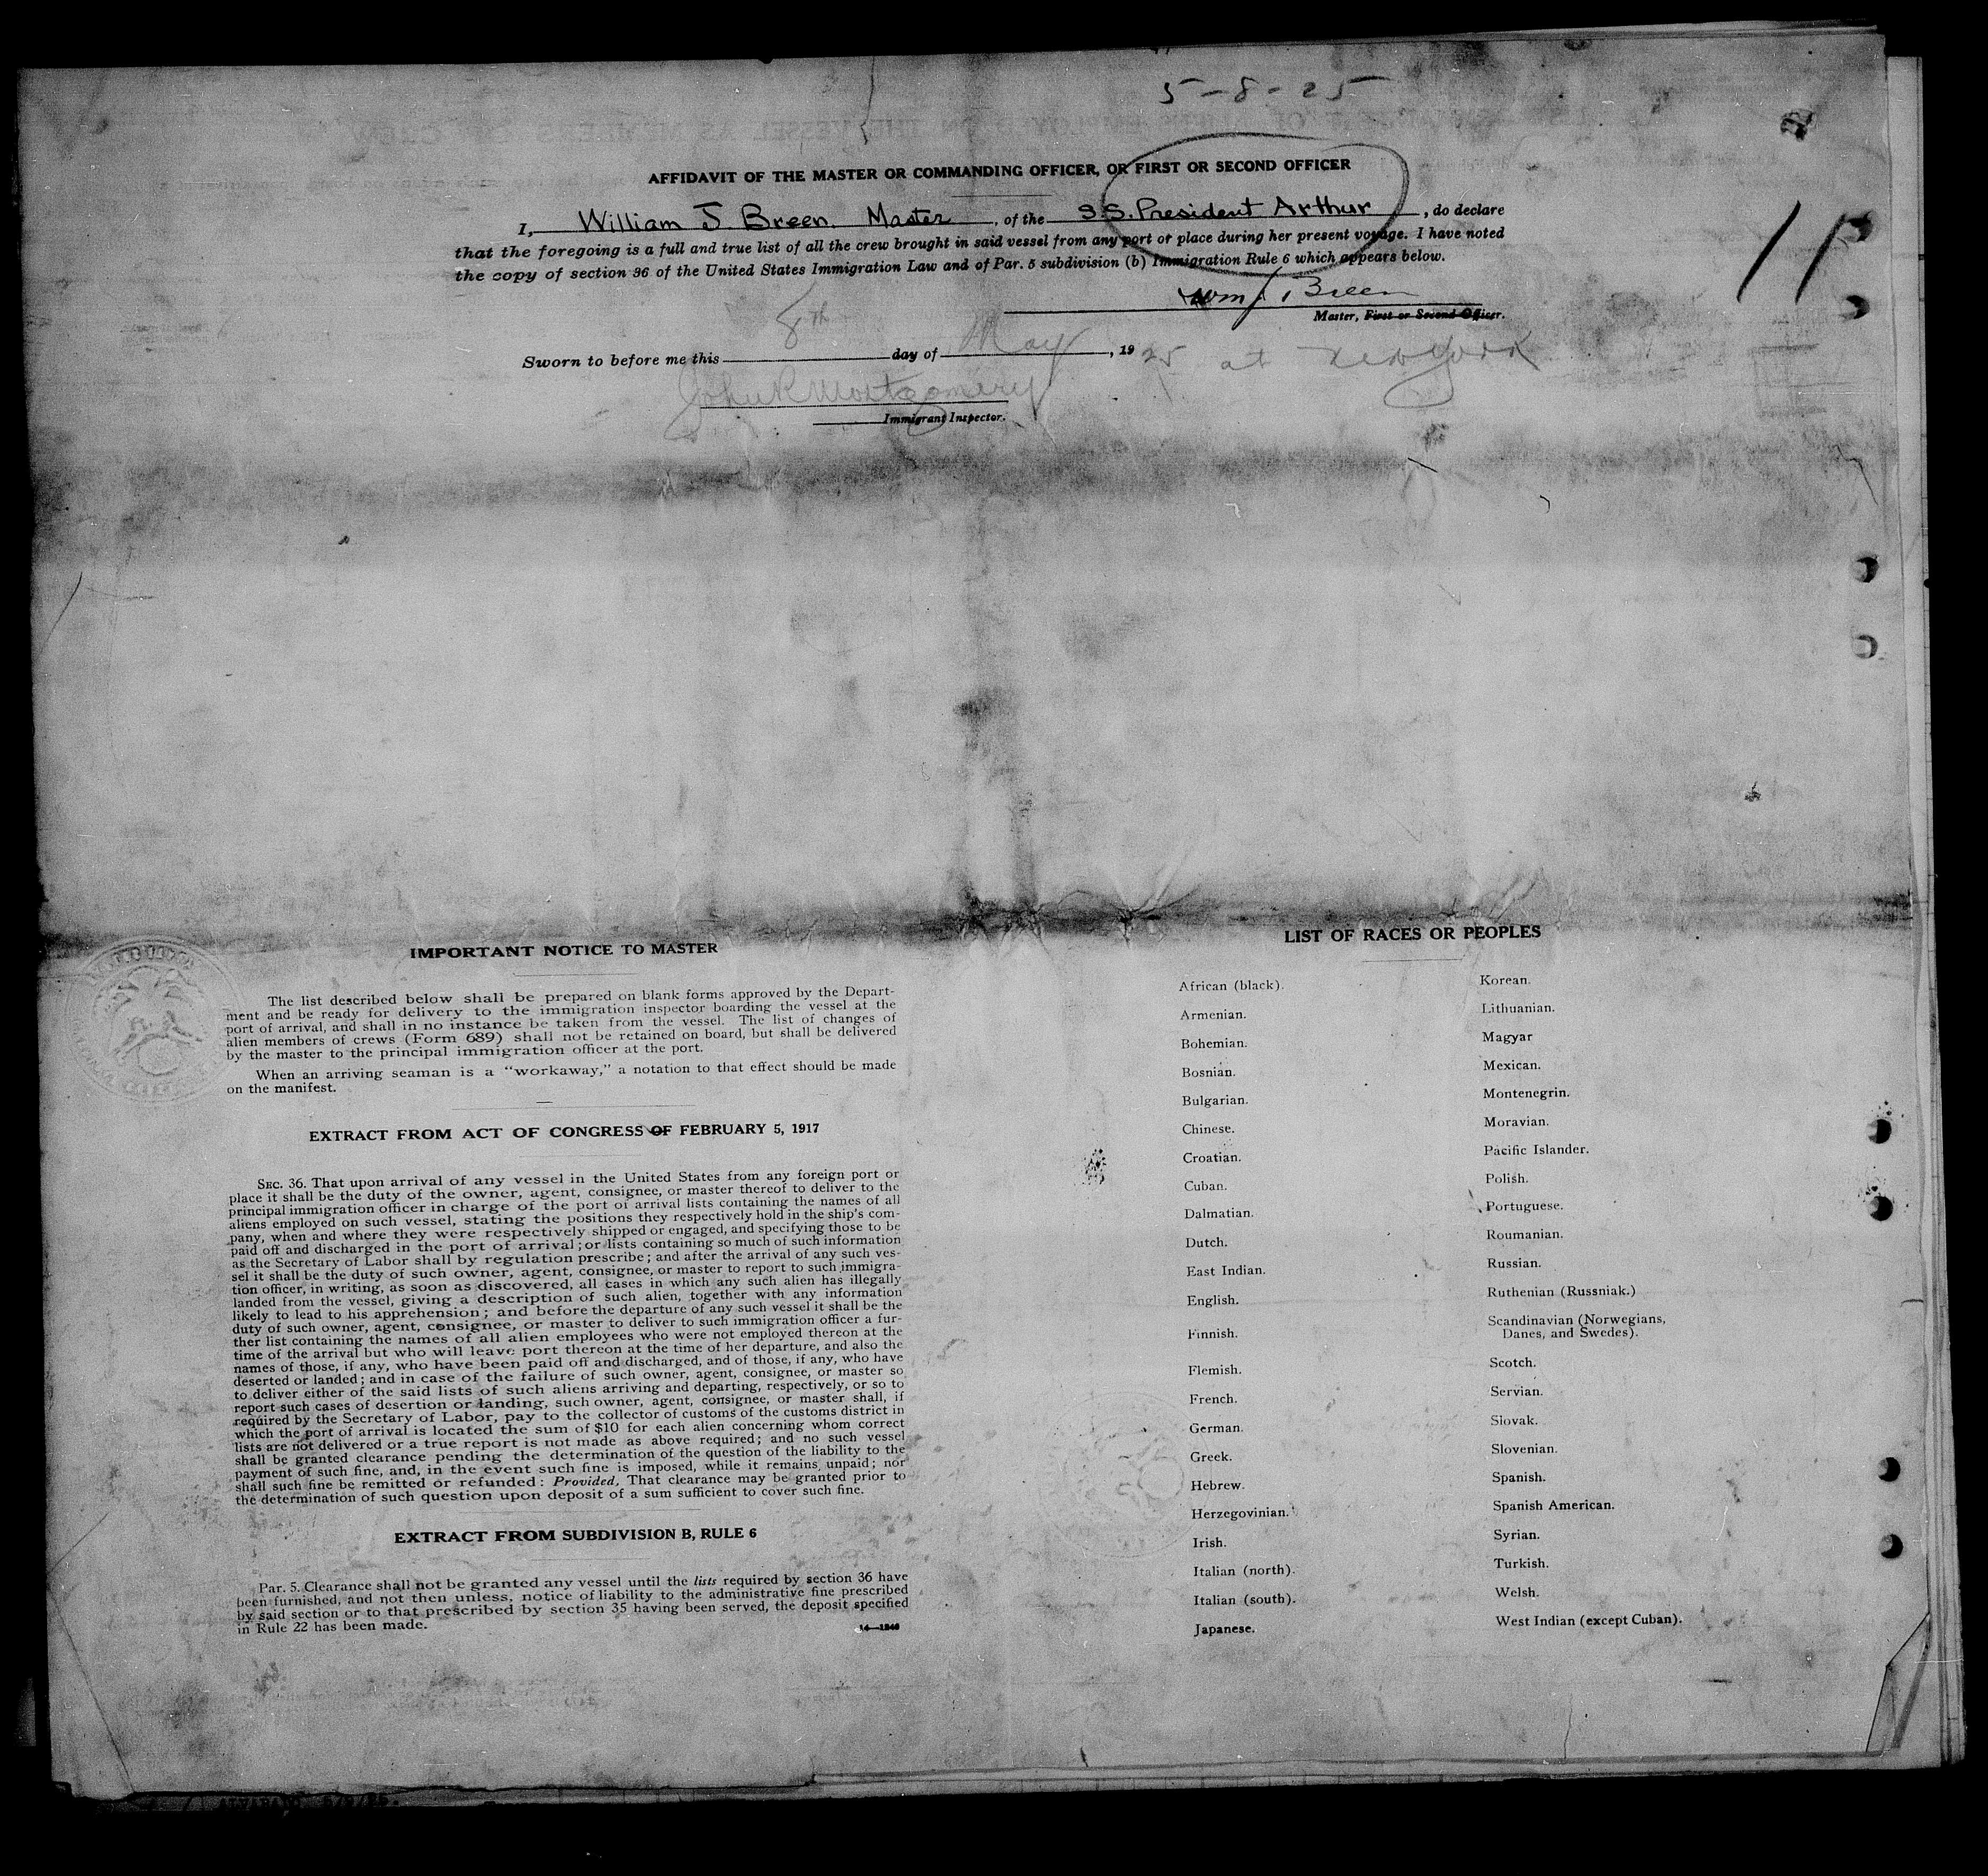 5-8-25
AFFIDAVIT OF THE MASTER OR COMMANDING OFFICER, OR FIRST OR SECOND OFFICER
I, William J. Breen. Master, of the S.S. President Arthur, do declare
that the foregoing is a full and true list of all the crew brought in said vessel from any port or place during her present voyage. I have noted
the copy of section 36 of the United States Immigration Law and of Par. 5 subdivision (b) Immigration Rule 6 which appears below.
Wm J. Breen
Master, First or Second Officer.
Sworn to before me this 8th day of May, 1925 at New York
John R Montgomery
Immigrant Inspector.
IMPORTANT NOTICE TO MASTER
The list described below shall be prepared on blank forms approved by the Depart-
ment and be ready for delivery to the immigration inspector boarding the vessel at the
port of arrival, and shall in no instance be taken from the vessel. The list of changes of
alien members of crews (Form 689) shall not be retained on board, but shall be delivered
by the master to the principal immigration officer at the port.
When an arriving seaman is a "workaway," a notation to that effect should be made
on the manifest.
EXTRACT FROM ACT OF CONGRESS OF FEBRUARY 5, 1917
SEC. 36. That upon arrival of any vessel in the United States from any foreign port or
place it shall be the duty of the owner, agent, consignee, or master thereof to deliver to the
principal immigration officer in charge of the port of arrival lists containing the names of all
aliens employed on such vessel, stating the positions they respectively hold in the ship's com-
pany, when and where they were respectively shipped or engaged, and specifying those to be
paid off and discharged in the port of arrival; or lists containing so much of such information
as the Secretary of Labor shall by regulation prescribe; and after the arrival of any such ves-
sel it shall be the duty of such owner, agent, consignee, or master to report to such immigra-
tion officer, in writing, as soon as discovered, all cases in which any such alien has illegally
landed from the vessel, giving a description of such alien, together with any information
likely to lead to his apprehension; and before the departure of any such vessel it shall be the
duty of such owner, agent, consignee, or master to deliver to such immigration officer a fur-
ther list containing the names of all alien employees who were not employed thereon at the
time of the arrival but who will leave port thereon at the time of her departure, and also the
names of those, if any, who have been paid off and discharged, and of those, if any, who have
deserted or landed; and in case of the failure of such owner, agent, consignee, or master so
to deliver either of the said lists of such aliens arriving and departing, respectively, or so to
report such cases of desertion or landing, such owner, agent, consignee, or master shall, if
required by the Secretary of Labor, pay to the collector of customs of the customs district in
which the port of arrival is located the sum of $10 for each alien concerning whom correct
lists are not delivered or a true report is not made as above required; and no such vessel
shall be granted clearance pending the determination of the question of the liability to the
payment of such fine, and, in the event such fine is imposed, while it remains unpaid; nor
shall such fine be remitted or refunded: Provided, That clearance may be granted prior to
the determination of such question upon deposit of a sum sufficient to cover such fine.
EXTRACT FROM SUBDIVISION B, RULE 6
Par. 5. Clearance shall not be granted any vessel until the lists required by section 36 have
been furnished, and not then unless, notice of liability to the administrative fine prescribed
by said section or to that prescribed by section 35 having been served, the deposit specified
in Rule 22 has been made.
14—1240
LIST OF RACES OR PEOPLES
African (black).
Armenian.
Bohemian.
Bosnian.
Bulgarian.
Chinese.
Croatian.
Cuban.
Dalmatian.
Dutch.
East Indian.
English.
Finnish.
Flemish.
French.
German.
Greek.
Hebrew.
Herzegovinian.
Irish.
Italian (north).
Italian (south).
Japanese.
Korean.
Lithuanian.
Magyar
Mexican.
Montenegrin.
Moravian.
Pacific Islander.
Polish.
Portuguese.
Roumanian.
Russian.
Ruthenian (Russniak.)
Scandinavian (Norwegians,
Danes, and Swedes).
Scotch.
Servian.
Slovak.
Slovenian.
Spanish.
Spanish American.
Syrian.
Turkish.
Welsh.
West Indian (except Cuban).